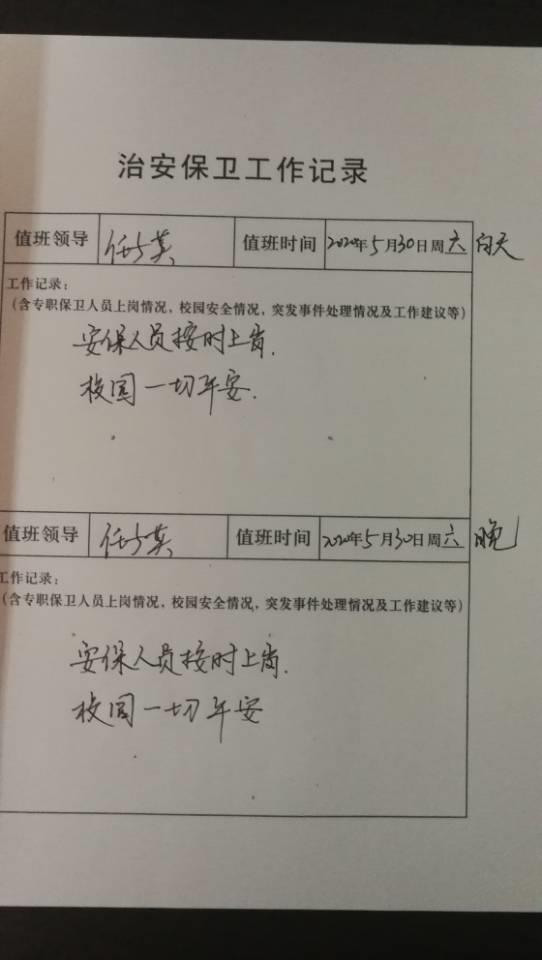 治安保卫工作记录
值班领导 值班时间 2020年5月30日周六 白天
工作记录：
（含专职保卫人员上岗情况，校园安全情况，突发事件处理情况及工作建议等）
安保人员按时上岗.
校园一切平安.
值班领导 值班时间 2020年5月30日周六 晚
工作记录：
（含专职保卫人员上岗情况，校园安全情况，突发事件处理情况及工作建议等）
安保人员按时上岗.
校园一切平安